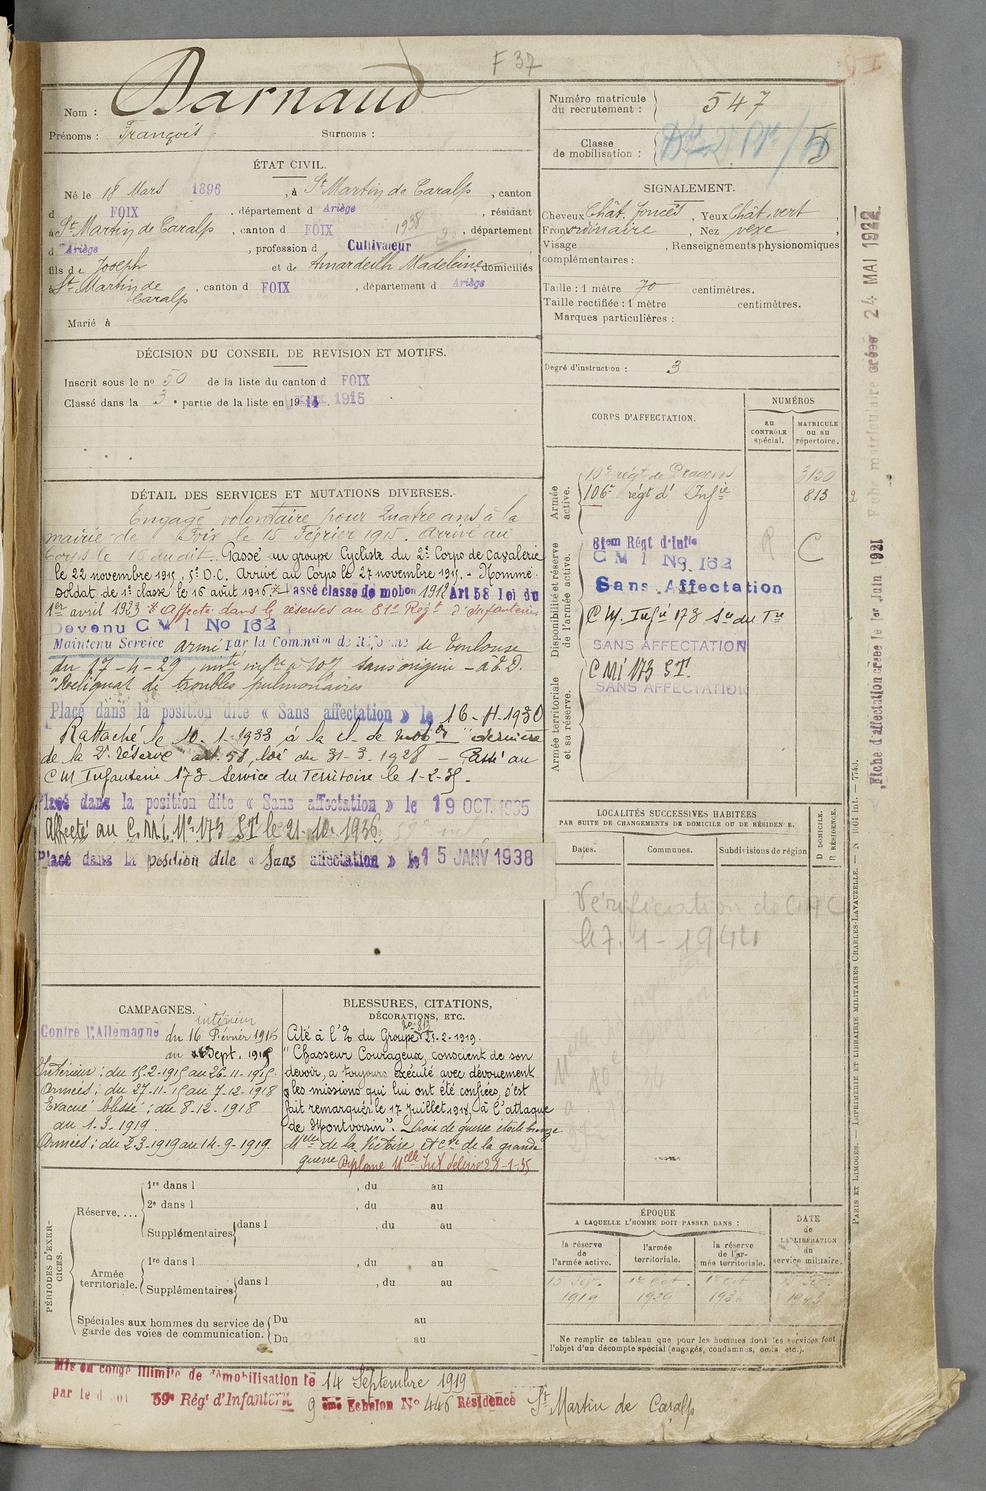 F 37
Nom : Barnaud
Prénoms : François Surnoms :
Numéro matricule du recrutement : 547
Classe de mobilisation :
ÉTAT CIVIL.
Né le 18 Mars 1896, à St Martin de Caralp, canton
d FOIX, département d Ariège, résidant
à St Martin de Caralp, canton d FOIX 1938, département
d Ariège, profession d Cultivateur
fils de Joseph et de Amardeilh Madeleine domiciliés
à St Martin de Caralp, canton d FOIX, département d Ariège
Marié à
SIGNALEMENT.
Cheveux Chât. foncés, Yeux chât. vert,
Front ordinaire, Nez vexe,
Visage , Renseignements physionomiques
complémentaires :
Taille : 1 mètre 70 centimètres.
Taille rectifiée : 1 mètre centimètres.
Marques particulières :
Degré d'instruction : 3
DÉCISION DU CONSEIL DE REVISION ET MOTIFS.
Inscrit sous le no 50 de la liste du canton d FOIX
Classé dans la 3e partie de la liste en 1914. 1915
DÉTAIL DES SERVICES ET MUTATIONS DIVERSES.
Engagé volontaire pour quatre ans à la
mairie de Foix le 15 Février 1915. Arrivé au
Corps le 16 dudit. Passé au groupe Cycliste du 2e Corps de Cavalerie
le 22 novembre 1915, 5e D.C. Arrivé au Corps le 27 novembre 1915. - Nommé
soldat de 1e classe le 16 août 1916. * Passé classe de mobon 1912 Art 58 Loi du
1er avril 1923 * Affecté dans les réserves au 81e Régt d'Infanterie
Devenu C M I No 162
Maintenu Service armé par la Commsion de Réforme de Toulouse
du 17-4-29, inf re à 10% sans origine - à E.D.
"Reliquat de troubles pulmonaires
Placé dans la position dite « Sans affectation » le 16-4-1930
Rattaché le 10-1-1933 à la cl. de mobon "dernière
de la 2e réserve" art. 58, loi du 31-3-1928 - Passé au
C M Infanterie 173 Service du Territoire le 1-2-35.
Placé dans la position dite « Sans affectation » le 19 OCT. 1935
Affecté au C.M.I. No 173 ST le 21.10.1936
Placé dans la position dite « Sans affectation » le 15 JANV 1938
CORPS D'AFFECTATION.
NUMÉROS
AU CONTRÔLE spécial.
MATRICULE OU AU répertoire.
Armée active.
10e régt de Dragons 3150
106e régt d'Infie 813
Disponibilité et réserve de l'armée active.
81em Régt d'Infie C
C M I No. 162
Sans Affectation
C M. Infie 173 Sce du Tre
SANS AFFECTATION
Armée territoriale et sa réserve.
C MI 173 S.T.
SANS AFFECTATION
LOCALITÉS SUCCESSIVES HABITÉES
PAR SUITE DE CHANGEMENTS DE DOMICILE OU DE RÉSIDENCE.
Dates. Communes. Subdivisions de région
D DOMICILE. R RÉSIDENCE.
Vérification de
le 7-1-1944
CAMPAGNES.
Contre l'Allemagne
intérieur
du 16 Février 1915
au Sept. 1919
Intérieur : du 15-2-1915 au 26-11-1915.
Armées : du 27-11-15 au 7-12-1918
Evacué blessé : du 8-12-1918
au 1-3-1919.
Armées : du 2-3-1919 au 14-9-1919.
BLESSURES, CITATIONS, DÉCORATIONS, ETC.
Cité à l'O du Groupe 25-2-1919.
"Chasseur Courageux, conscient de son
devoir, a toujours exécuté avec dévouement
les missions qui lui ont été confiées, s'est
fait remarquer le 17 juillet 1918, à l'attaque
de Montvoisin". Croix de guerre étoile bronze
Melle de la Victoire et Cve de la grande
guerre Diplome Melle Int délivré 28-1-35
PÉRIODES D'EXERCICES.
Réserve....
1re dans l , du au
2e dans l , du au
Supplémentaires dans l , du au
Armée territoriale.
1re dans l , du au
Supplémentaires dans l , du au
Spéciales aux hommes du service de garde des voies de communication.
Du au
Du au
ÉPOQUE
A LAQUELLE L'HOMME DOIT PASSER DANS :
la réserve de l'armée active.
l'armée territoriale.
la réserve de l'armée territoriale.
DATE de LA LIBÉRATION du service militaire.
1919
Ne remplir ce tableau que pour les hommes dont les services font
l'objet d'un décompte spécial (engagés, condamnés, omis etc.).
Mis en congé illimité de démobilisation le 14 Septembre 1919
par le dépôt 59e Régt d'Infanterie 9 ème Echelon No 446 Résidence St Martin de Caralp
Fiche matriculaire créée 24 MAI 1922
Fiche d'affectation créée le 1er Juin 1921
PARIS ET LIMOGES. — IMPRIMERIE ET LIBRAIRIE MILITAIRES CHARLES-LAVAUZELLE. — N 1001 Int. — 7745.